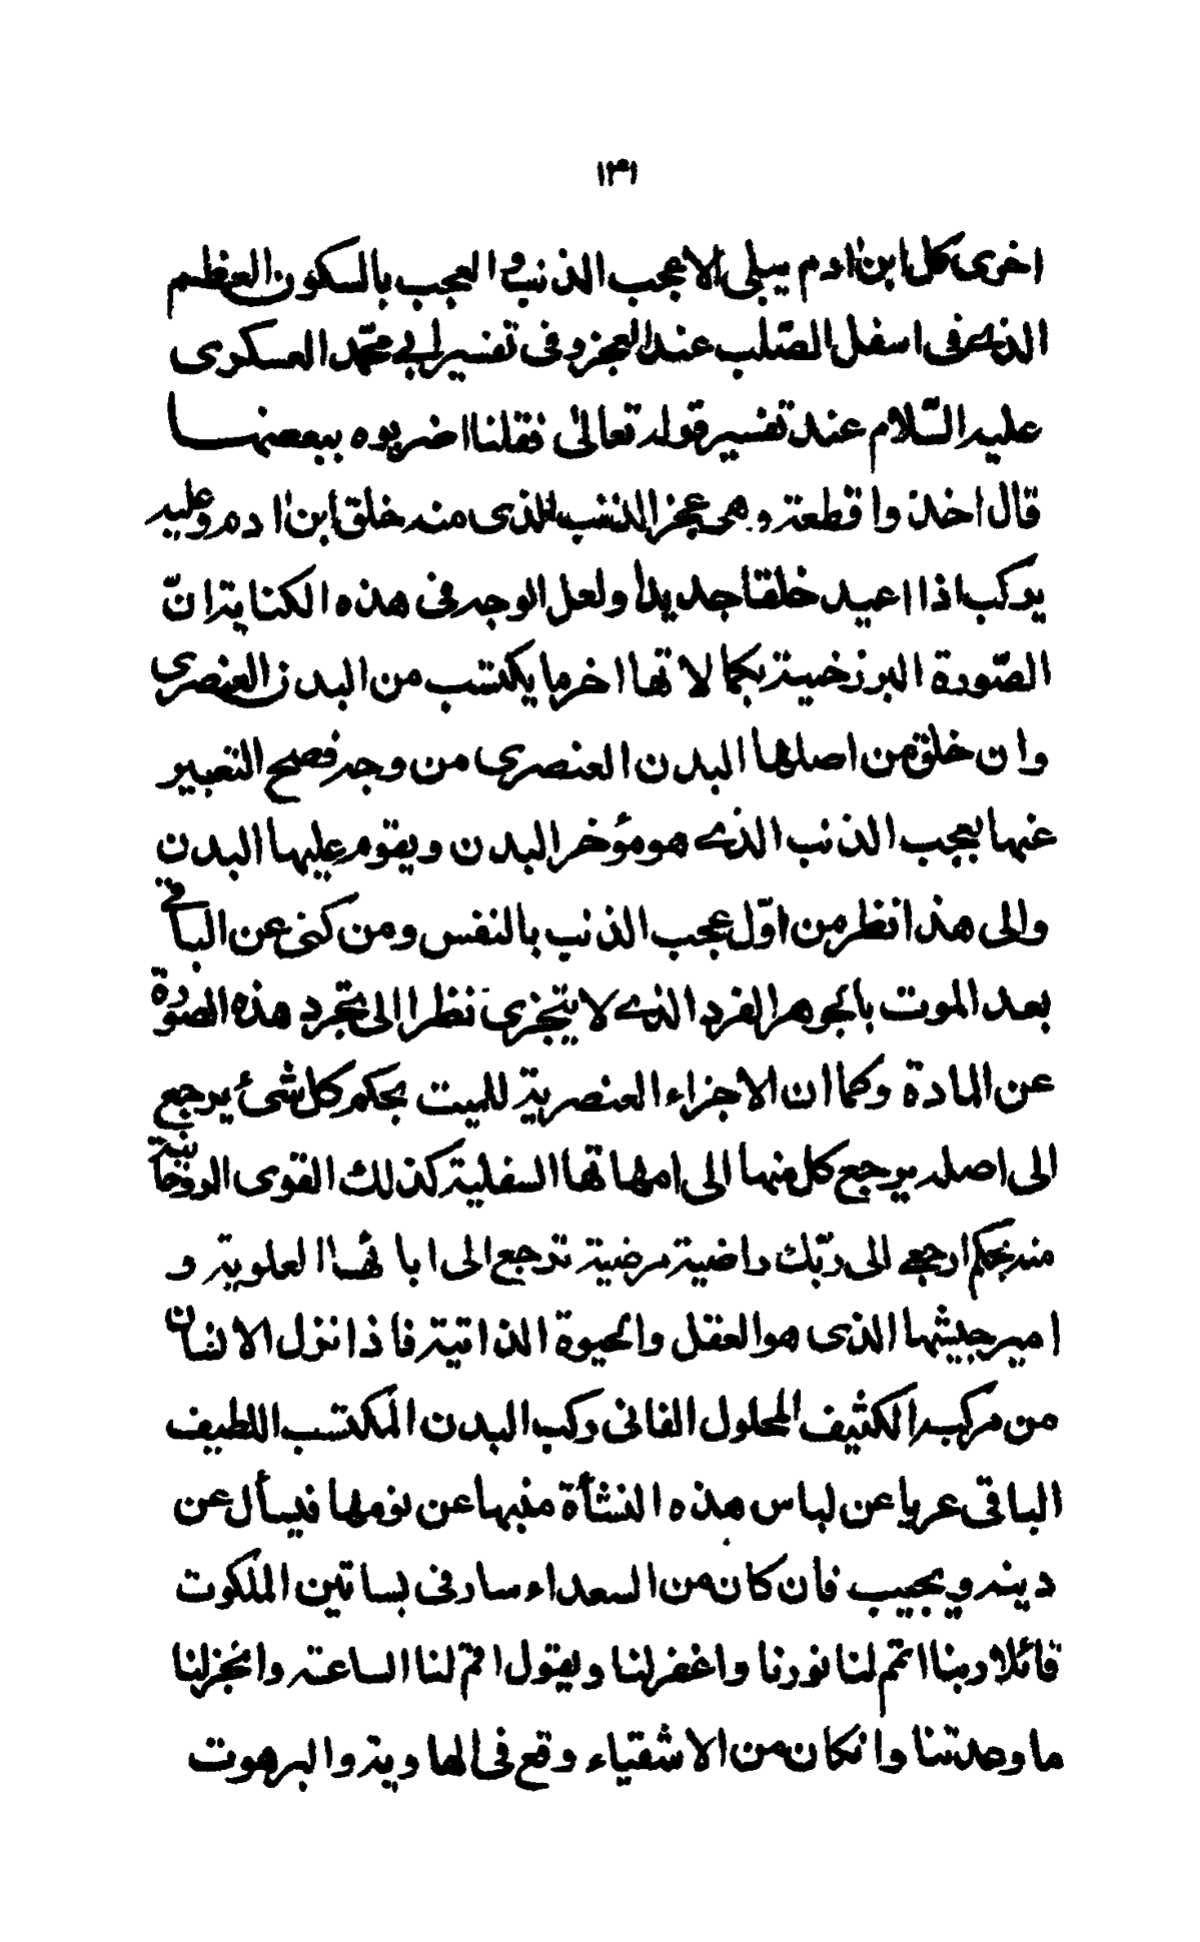 ١٣١
اخرى كل ابن ادم يبلى الا عجب الذنب و العجب بالسكون العظم
الذى فى اسفل الصّلب عند العجز و فى تفسير ابى محمّد العسكرى
عليه السّلام عند تفسير قوله تعالى فقلنا اضربوه ببعضها
قال اخذوا قطعة و هى عجز الذنب الذى منه خلق ابن ادم و عليه
يركب اذا اعيد خلقا جديدا و لعل الوجه فى هذه الكناية انّ
الصّورة البرزخية بكمالاتها اخر ما يكتسب من البدن العنصرى
و ان خلق من اصلها البدن العنصرى من وجه فصح التعبير
عنها بعجب الذنب الذى هو مؤخر البدن و يقوم عليها البدن
و الى هذا نظر من اوّل عجب الذنب بالنفس و من كنى عن الباقى
بعد الموت بالجوهر الفرد الذى لا يتجزى نظرا الى تجرد هذه الصّورة
عن المادة و كما ان الاجزاء العنصرية للميت بحكم كل شئ يرجع
الى اصله يرجع كل منها الى امهاتها السفلية كذلك القوى الروحانية
منه بحكم ارجعى الى ربّك راضية مرضية ترجع الى ابائها العلوية و
امير جيشها الذى هو العقل و الحيوة الذاتية فاذا نزل الانسان
من مركبه الكثيف المحلول الفانى و ركب البدن المكتسب اللطيف
الباقى عريا عن لباس هذه النشأة منبها عن نومها فيسأل عن
دينه و يجيب فان كان من السعداء سار فى بساتين الملكوت
قائلا ربنا اتمم لنا نورنا و اغفر لنا و يقول اقم لنا الساعة و انجز لنا
ما وعدتنا و انكان من الاشقياء وقع فى الهاوية و البرهوت